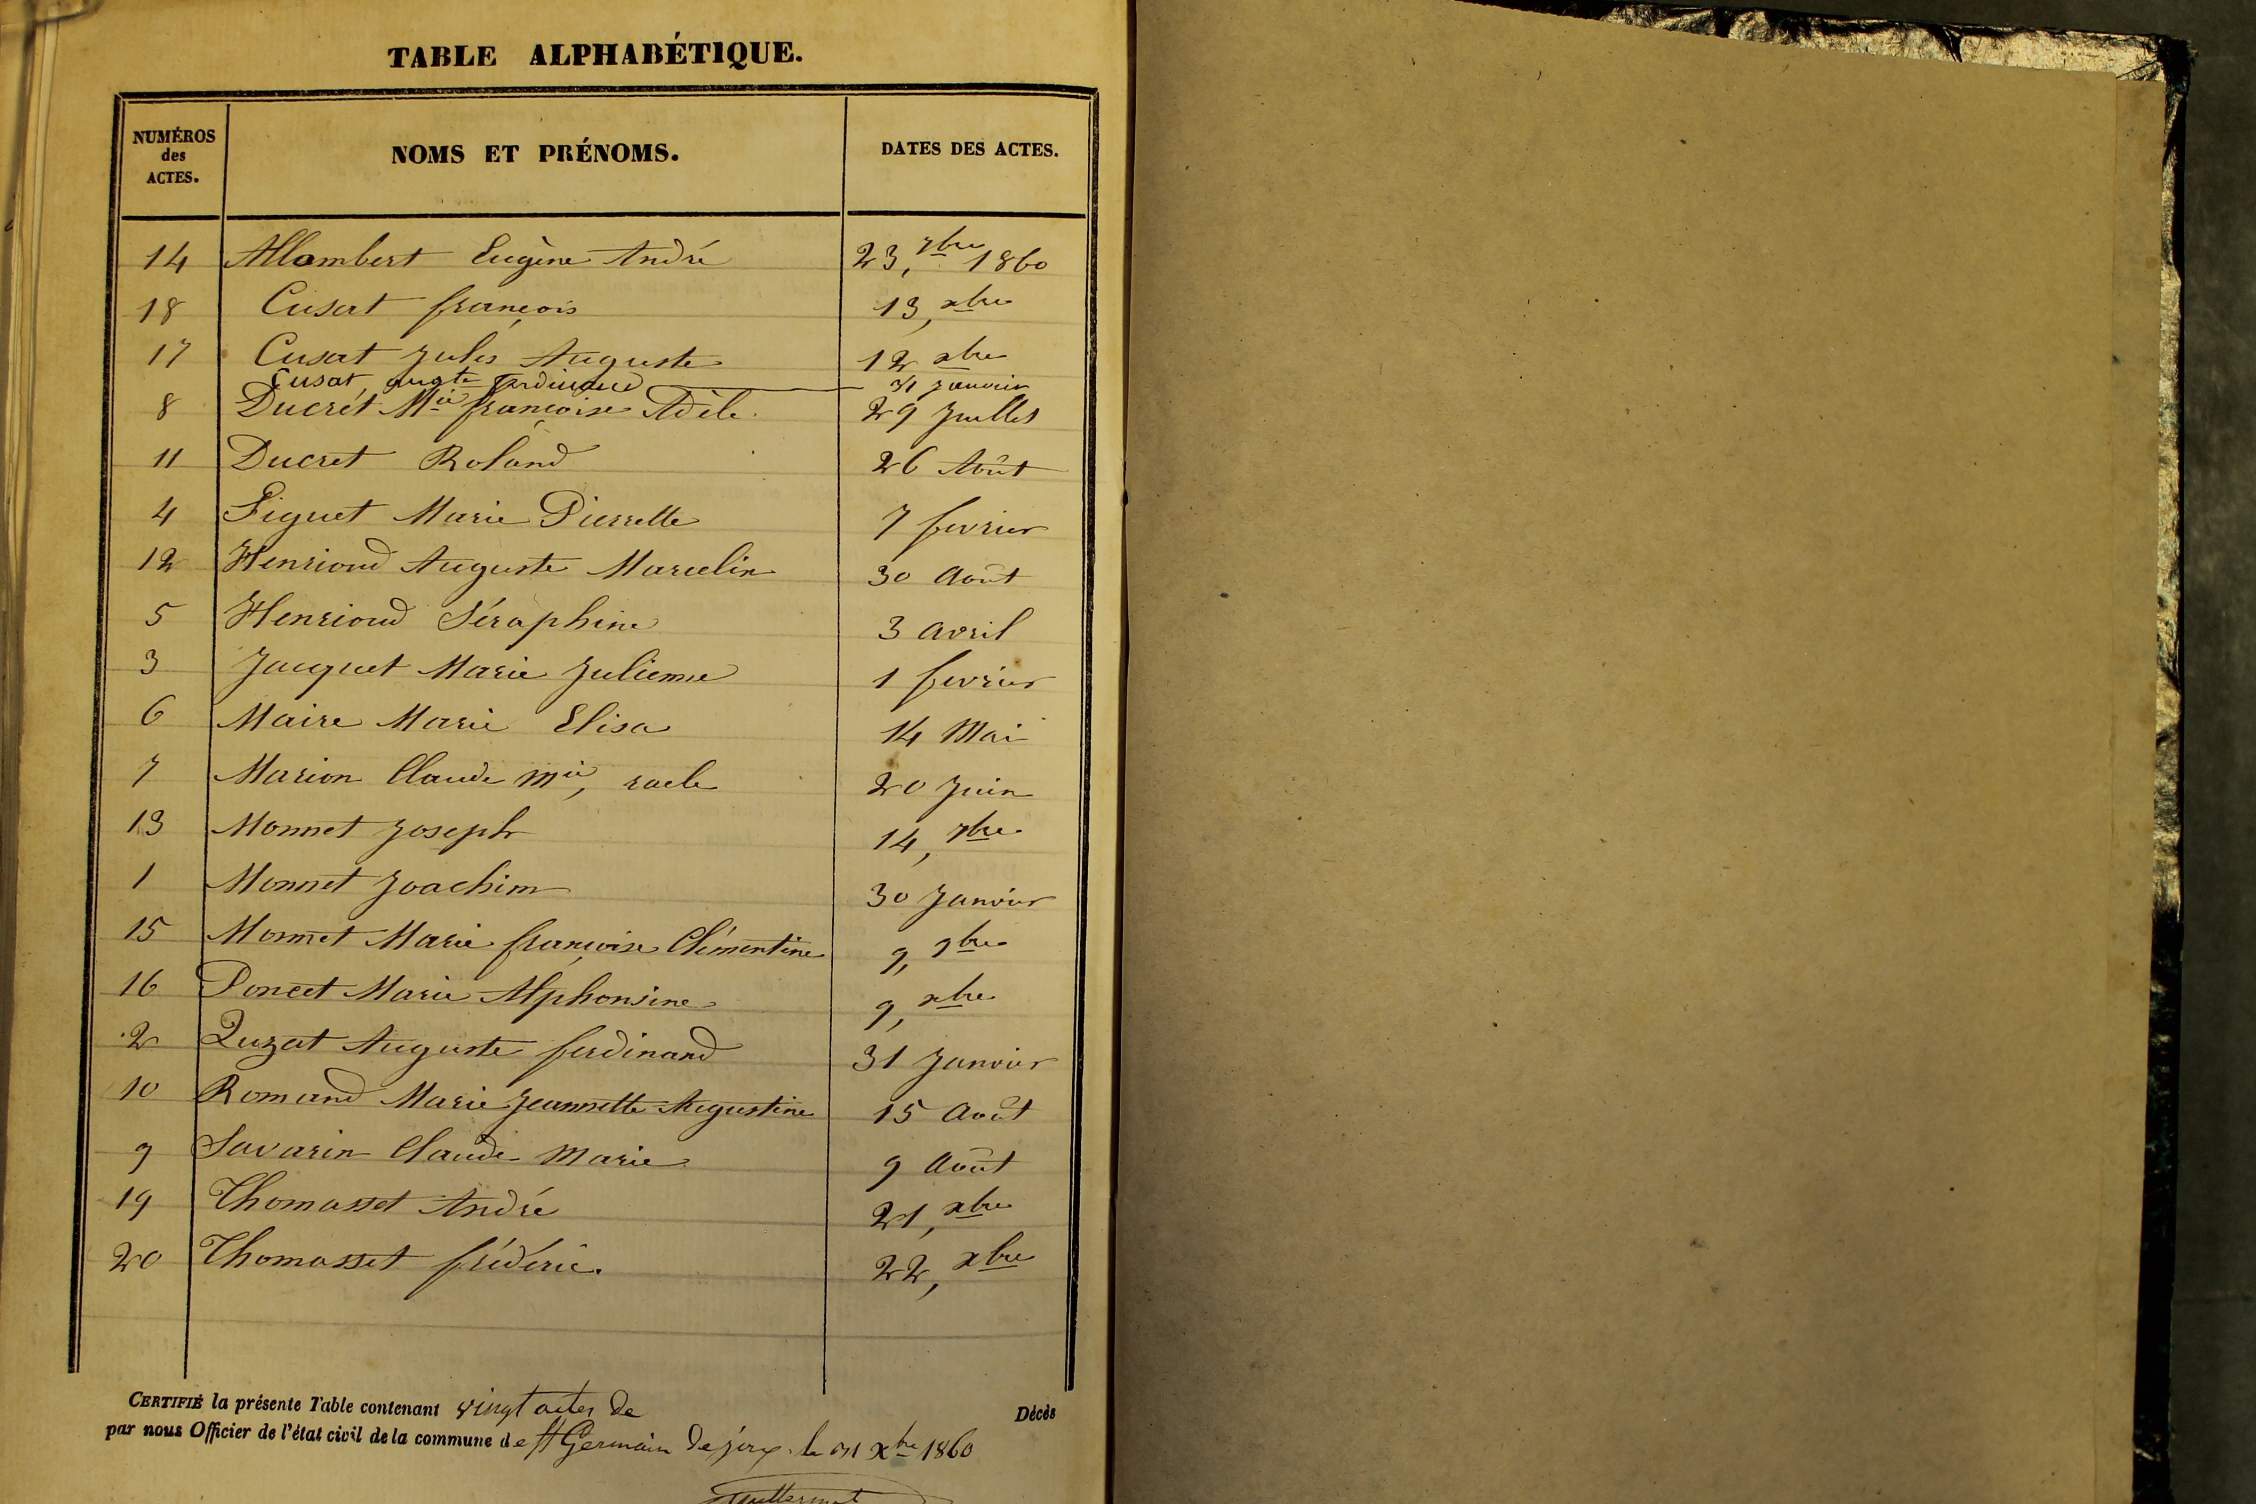 TABLE ALPHABÉTIQUE.
NUMÉROS des ACTES. NOMS ET PRÉNOMS. DATES DES ACTES.
14 Allombert Eugène André 23, 7bre 1860
18 Cusat françois 13, xbre
17 Cusat Jules Auguste 12 xbre
Cusat, augte ferdinand 31 Janvier
8 Ducrét Mie françoise Adèle 29 Juillet
11 Ducret Roland 26 Août
4 Piguet Marie Pierrette 7 fevrier
12 Henrioud Auguste Marcelin 30 Août
5 Henrioud Séraphine 3 avril
3 Jacquet Marie Julienne 1 fevrier
6 Maire Marie Elisa 14 Mai
7 Marion Claude Mie, racle 20 Juin
13 Monnet Joseph 14, 7bre
1 Monnet Joachim 30 Janvier
15 Monnet Marie françoise Clémentine 9, 9bre
16 Poncet Marie Alphonsine 9, xbre
2 Quzat Auguste ferdinand 31 Janvier
10 Romand Marie Jeannette Augustine 15 Août
9 Savarin Claude Marie 9 Août
19 Thomasset André 21, xbre
20 Thomasset frédéric. 22, xbre
CERTIFIÉ la présente Table contenant vingt actes de Décès
par nous Officier de l'état civil de la commune de St Germain de joux le 31 Xbre 1860